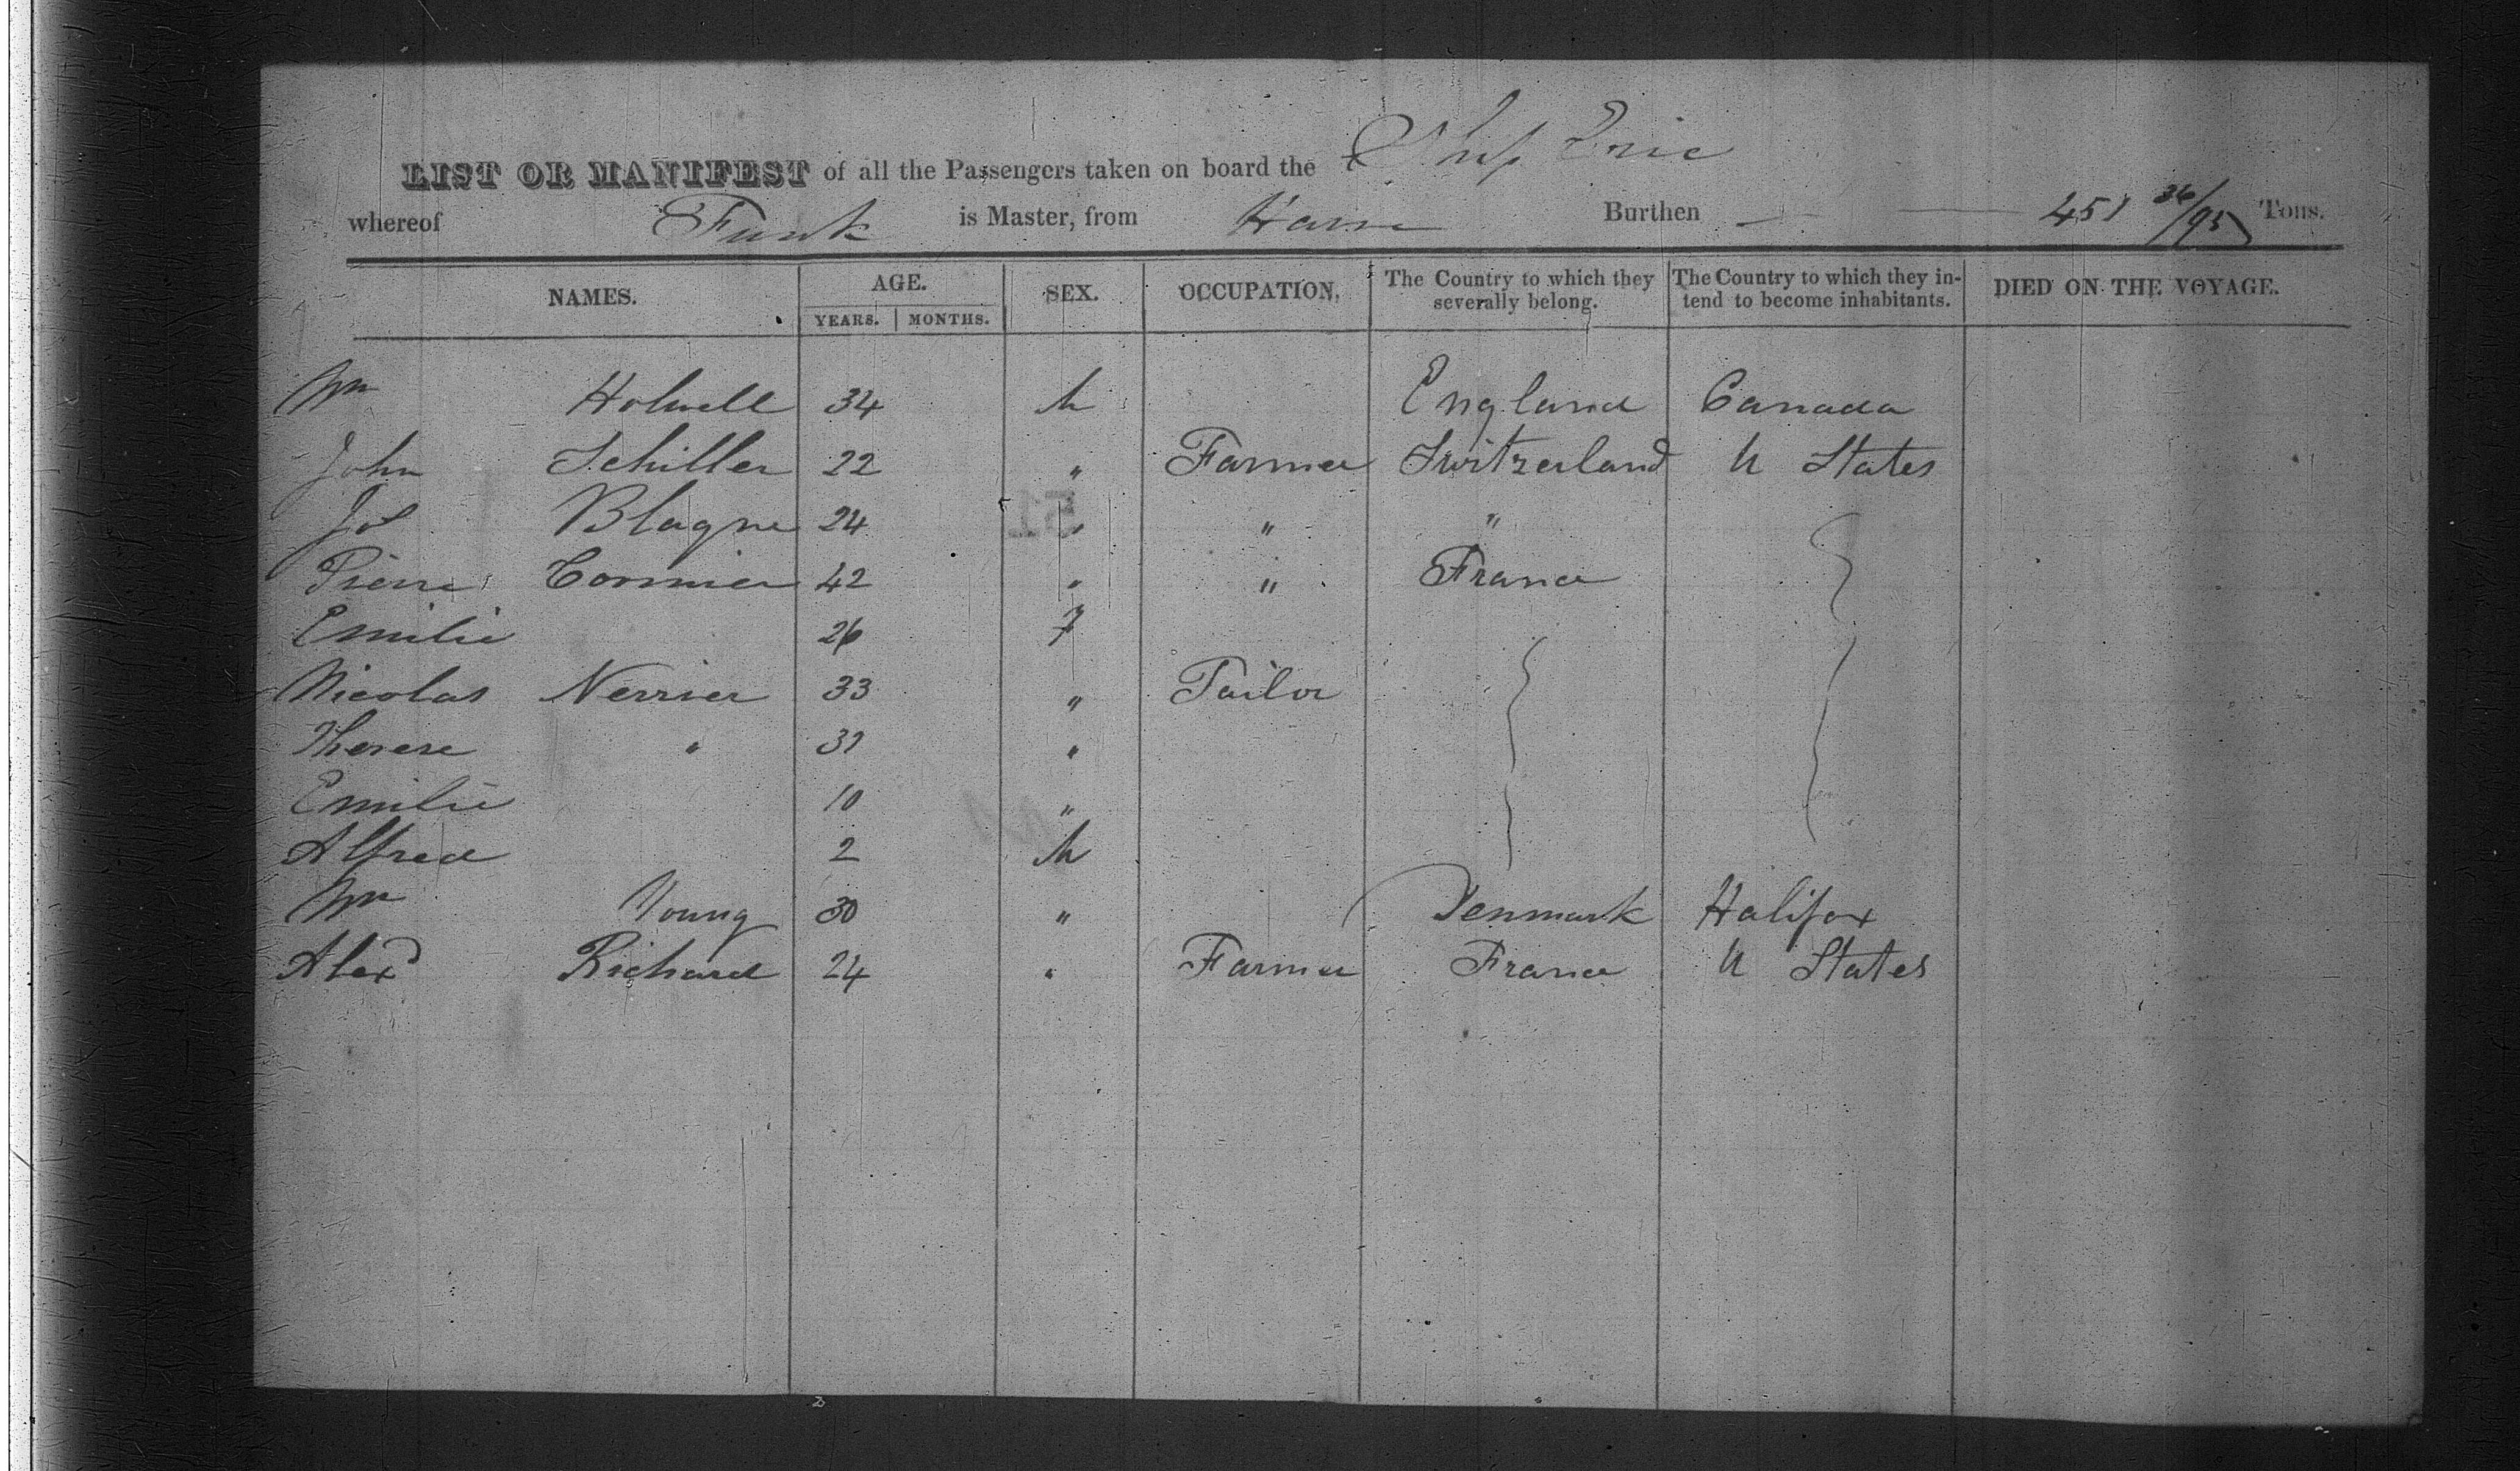 LIST OR MANIFEST of all the Passengers taken on board the Ship Erie
whereof Funk is Master, from Havre Burthen — — 451 36/95 Tons.
NAMES. AGE. SEX. OCCUPATION. The Country to which they severally belong. The Country to which they intend to become inhabitants. DIED ON THE VOYAGE.
YEARS. MONTHS.
Wm Holwell 34 M England Canada
John Schiller 22 " Farmer Switzerland U States
Jos Blagne 24 " " "
Pierre Cormier 42 " " France
Emilie 26 F
Nicolas Nerrier 33 " Tailor
Therese " 31 "
Emilie 10 "
Alfred 2 M
Wm Young 30 " Denmark Halifax
Alexd Richard 24 " Farmer France U States